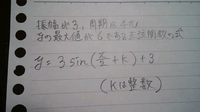 振幅が3、周期が4π、
yの最大値が6である三角関数の式
y = 3 sin(x/2 + k) + 3
(kは整数)